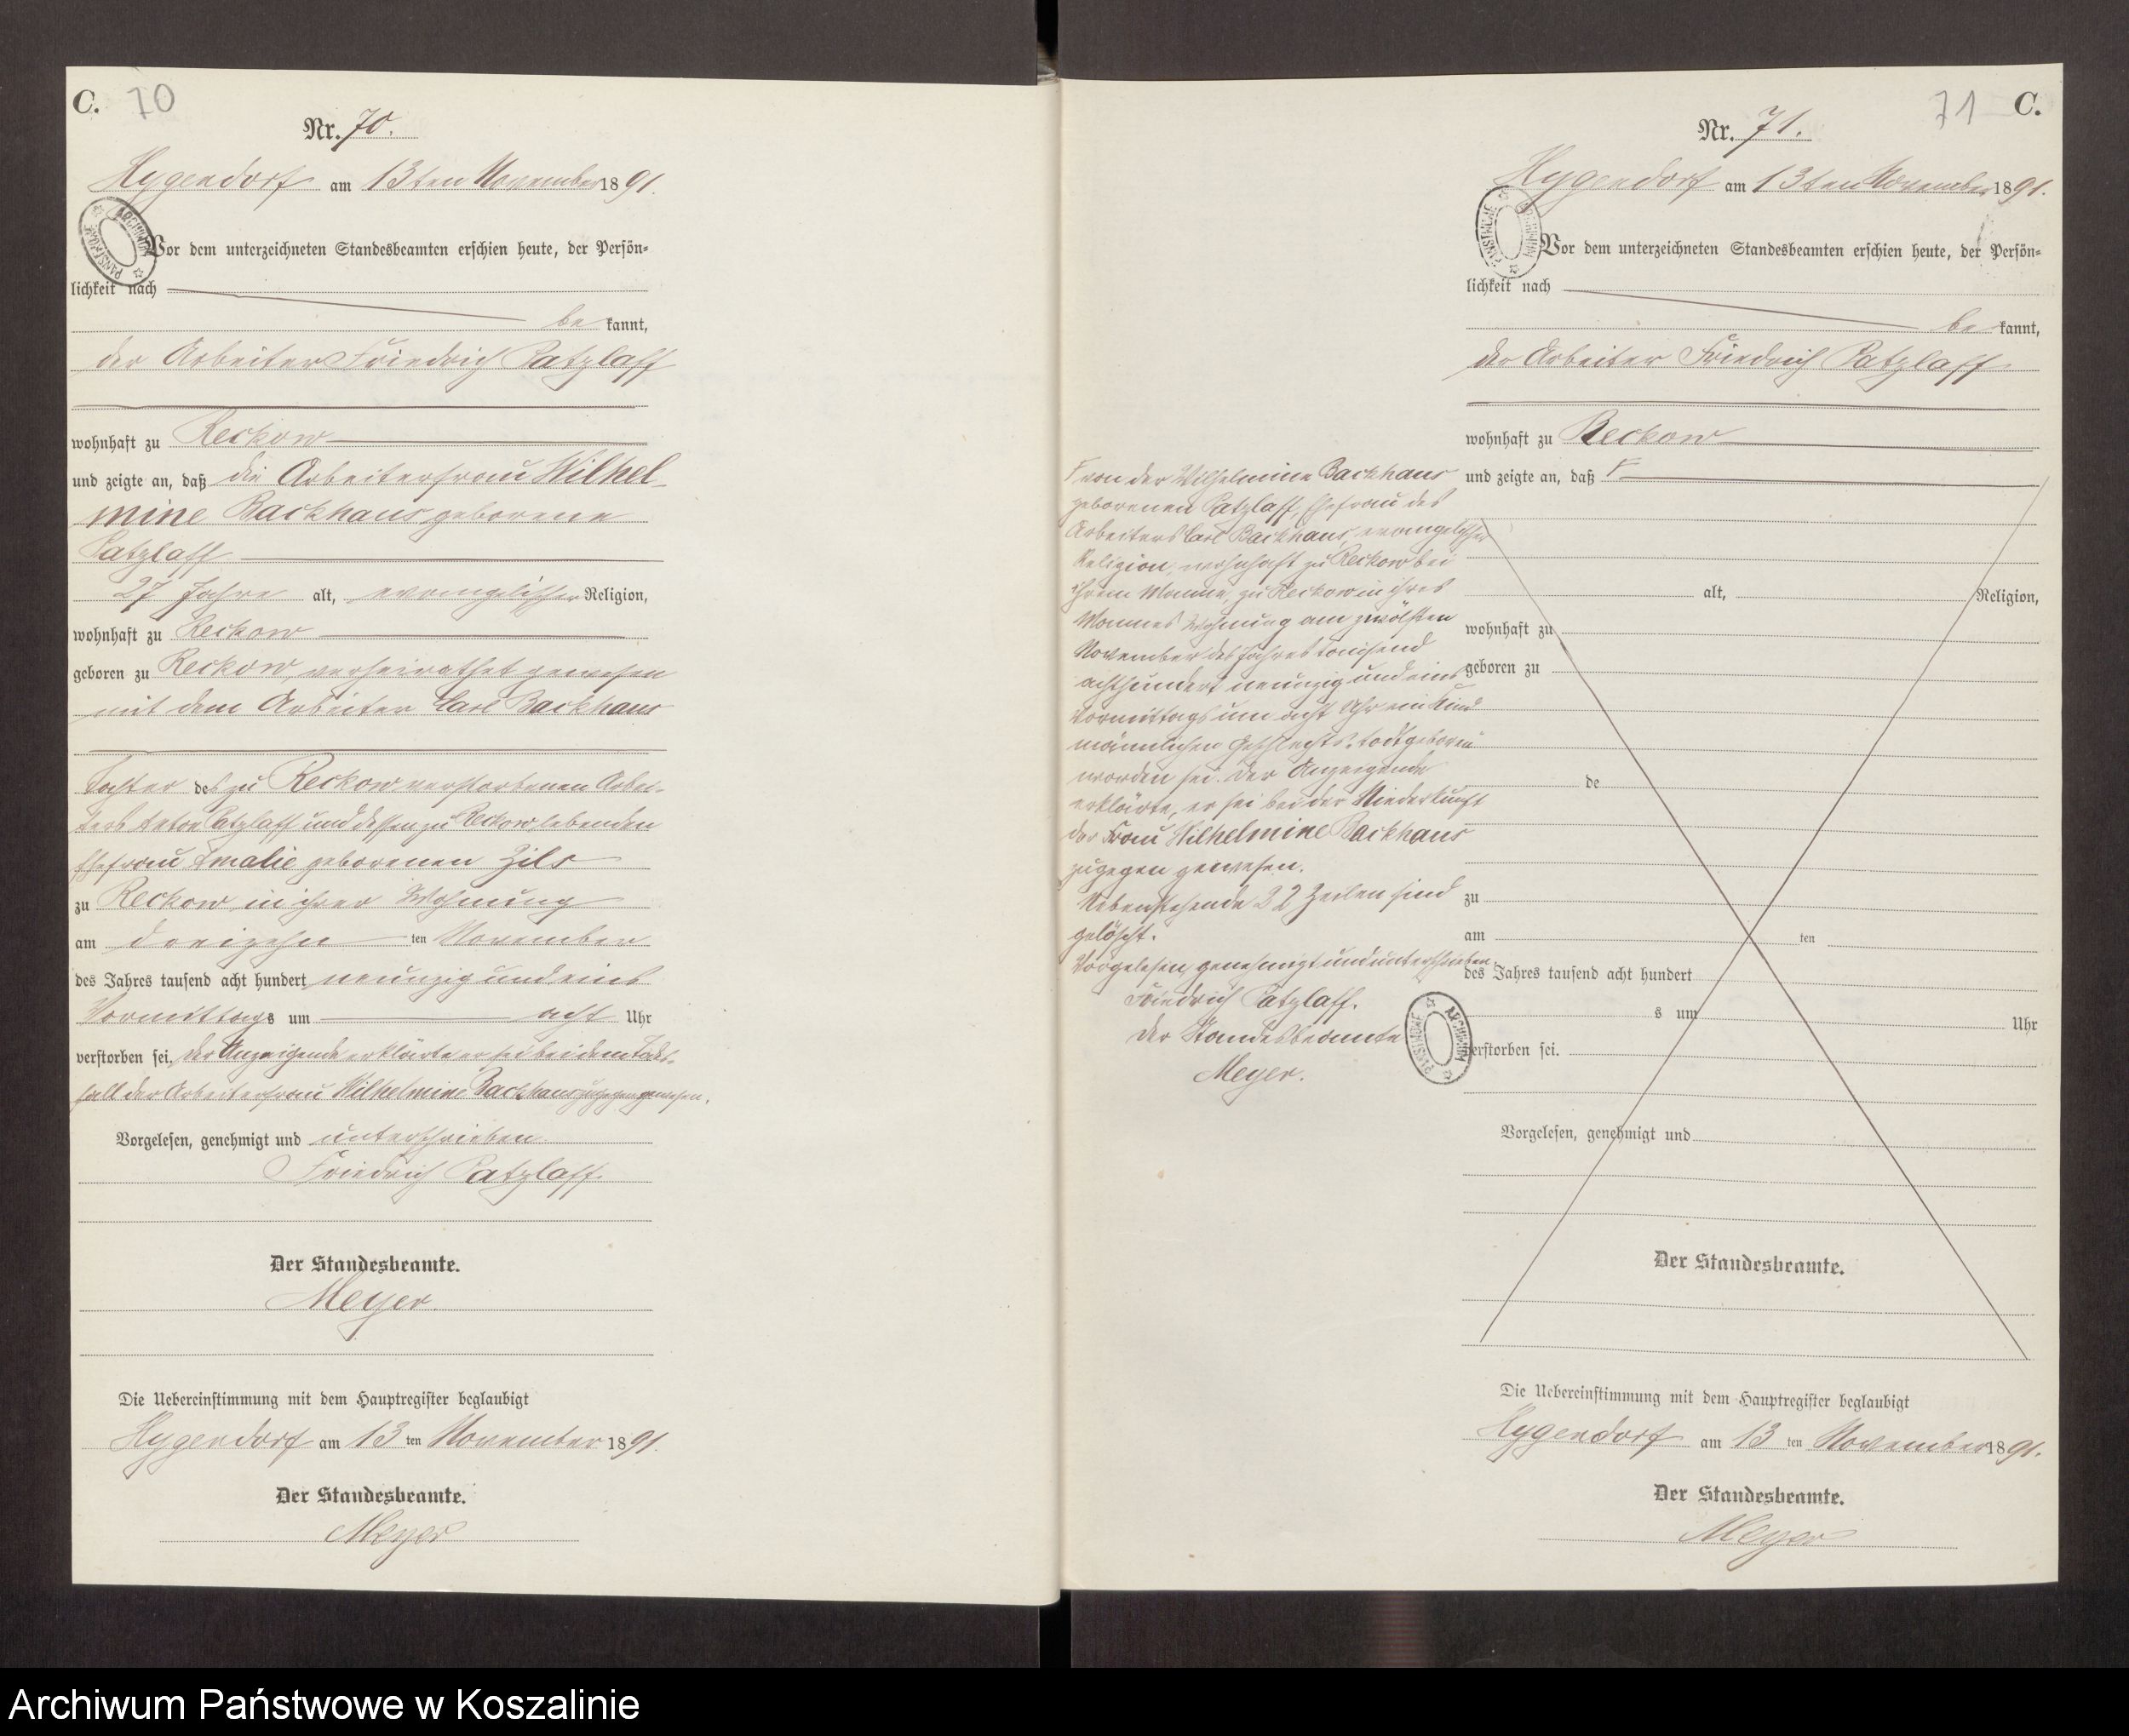 C. 70
Nr. 70.
Hygendorf am 13ten November 1891.
Vor dem unterzeichneten Standesbeamten erschien heute, der Persön-
lichkeit nach
be kannt,
der Arbeiter Friedrich Patzlaff
wohnhaft zu Reckow
und zeigte an, daß die Arbeiterfrau Wilhel-
mine Backhaus geborene
Patzlaff
27 Jahre alt, evangelischer Religion,
wohnhaft zu Reckow
geboren zu Reckow, verheirathet gewesen
mit dem Arbeiter Carl Backhaus
Tochter des zu Reckow verstorbenen Arbei-
ters Anton Patzlaff und dessen zu Reckow lebenden
Ehefrau Amalie geborenen Zils
zu Reckow in ihrer Wohnung
am dreizehn ten November
des Jahres tausend acht hundert neunzig und eins
Vormittags um acht Uhr
verstorben sei, der Anzeigende erklärte er sei bei dem Todes-
fall der Arbeiterfrau Wilhelmine Backhaus zugegen gewesen.
Vorgelesen, genehmigt und unterschrieben
Friedrich Patzlaff.
Der Standesbeamte.
Meyer.
Die Uebereinstimmung mit dem Hauptregister beglaubigt
Hygendorf am 13 ten November 1891.
Der Standesbeamte.
Meyer
71 C.
Nr. 71.
Hygendorf am 13ten November 1891.
Vor dem unterzeichneten Standesbeamten erschien heute, der Persön-
lichkeit nach
be kannt,
der Arbeiter Friedrich Patzlaff
wohnhaft zu Reckow
und zeigte an, daß
von der Wilhelmine Backhaus
geborenen Patzlaff, Ehefrau des
Arbeiters Carl Backhaus, evangelischer
Religion, wohnhaft zu Reckow bei
ihrem Manne, zu Reckow in ihres
Mannes Wohnung am zwölften
November des Jahres tausend
achthundert neunzig und eins
Vormittags um acht Uhr ein Kind
männlichen Geschlechts, todtgeboren
worden sei. Der Anzeigende
erklärte, er sei bei der Niederkunft
der Frau Wilhelmine Backhaus
zugegen gewesen.
Nebenstehende 22 Zeilen sind
gelöscht.
Vorgelesen, genehmigt und unterschrieben
Friedrich Patzlaff.
Der Standesbeamte
Meyer.
alt, Religion,
wohnhaft zu
geboren zu
de
zu
am ten
des Jahres tausend acht hundert
s um Uhr
verstorben sei.
Vorgelesen, genehmigt und
Der Standesbeamte.
Die Uebereinstimmung mit dem Hauptregister beglaubigt
Hygendorf am 13 ten November 1891.
Der Standesbeamte.
Meyer
Archiwum Państwowe w Koszalinie